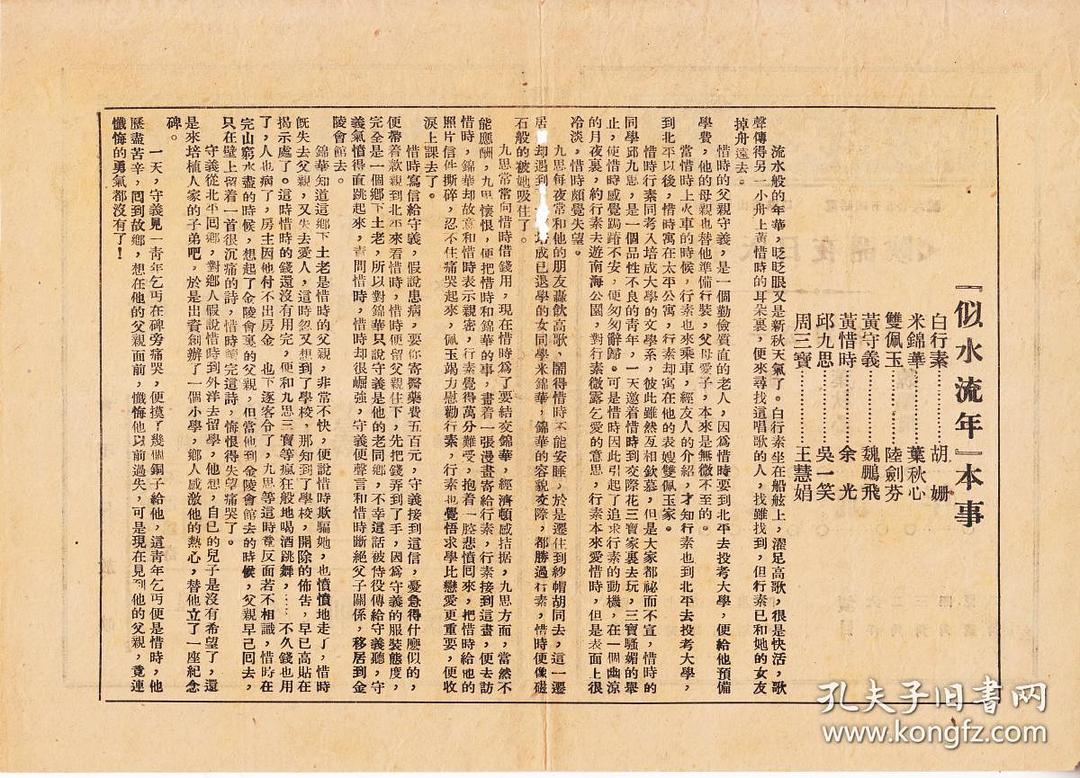 『似水流年』本事
白行素………………胡　姍
米錦華………………葉秋心
雙佩玉………………陸劍芬
黃守義………………魏鵬飛
黃惜時………………余　光
邱九思………………吳一笑
周三寶………………王慧娟
流水般的年華，眨眨眼又是新秋天氣了。白行素坐在船舷上，濯足高歌，很是快活，歌
聲傳得另一小舟上黃惜時的耳朵裏，便來尋找這唱歌的人，找雖找到，但行素已和她的女友
掉舟遠去。
惜時的父親守義，是一個勤儉質直的老人，因爲惜時要到北平去投考大學，便給他預備
學費，他的母親也替他準備行裝，父母愛子，本來是無微不至的。
當惜時上火車的時候，行素也來乘車，經友人的介紹，才知行素也到北平去投考大學，
到北平以後，惜時寓在太平公寓，行素却寓在他的表嫂雙佩玉家。
惜時行素同考入培成大學的文學系，彼此雖然互相欽慕，但是大家都祕而不宣，惜時的
同學邱九思，是一個品性不良的青年，一天邀着惜時到交際花三寶家裏去玩，三寶騷媚的舉
止，使惜時感覺跼蹐不安，便匆匆辭歸。可是惜時因此引起了追求行素的動機，在一個幽涼
的月夜裏，約行素去遊南海公園，對行素微露乞愛的意思，行素本來愛惜時，但是表面上很
冷淡，惜時頗覺失望。
九思每夜常和他的朋友轟飲高歌，鬧得惜時不能安睡，於是遷住到紗帽胡同去，這一遷
居却遇到培成已退學的女同學米錦華，錦華的容貌交際，都勝過行素，惜時便像磁
石般的被她吸住了。
九思常常向惜時借錢用，現在惜時爲了要結交錦華，經濟頓感拮据，九思方面，當然不
能應酬，九思懷恨，便把惜時和錦華的事，畫着一張漫畫寄給行素，行素接到這畫，便去訪
惜時，錦華却故意和惜時表示親密，行素覺得萬分難受，抱着一腔悲憤回來，把惜時給她的
照片信件撕碎，忍不住痛哭起來，佩玉竭力慰勸行素，行素也覺悟求學比戀愛更重要，便收
淚上課去了。
惜時寫信給守義，假說患病，要你寄醫藥費五百元，守義接到這信，憂急得什麼似的，
便帶着款親到北平來看惜時，惜時便留父親住下，先把錢弄到了手，因爲守義的服裝態度，
完全是一個鄉下土老，所以對錦華只說守義是他的老同鄉，不幸這話被侍役傳給守義聽，守
義氣憤得直跳起來，責問惜時，惜時却很崛強，守義便聲言和惜時斷絕父子關係，移居到金
陵會館去。
錦華知道這鄉下土老是惜時的父親，非常不快，便說惜時欺騙她，也憤憤地走了，惜時
旣失去父親，又失去愛人，這時忽又想到了學校，那知到了學校，開除的佈告，早已高貼在
揭示處了。這時惜時的錢還沒有用完，便和九思三寶等瘋狂般地喝酒跳舞，……不久錢也用
了，人也病了，房主因他付不出房金　也下逐客令了，九思等這時竟反面若不相識，惜時在
完山窮水盡的時候，想起了金陵會裏的父親，但當他到金陵會館去的時候，父親早己回去，
只在壁上留着一首很沉痛的詩，惜時讀完這詩，悔恨得失望痛哭了。
守義從北平回鄉，對鄉人假說惜時到外洋去留學，他想，自已的兒子是沒有希望了，還
是來培植人家的子弟吧，於是出資創辦了一個小學，鄉人感激他的熱心，替他立了一座紀念
碑。
一天，守義見一青年乞丐在碑旁痛哭，便摸了幾個銅子給他，這青年乞丐便是惜時，他
歷盡苦辛，回到故鄉，想在他的父親面前，懺悔他以前過失，可是現在見到他的父親，竟連
懺悔的勇氣都沒有了！
孔夫子旧書网
www.kongfz.com